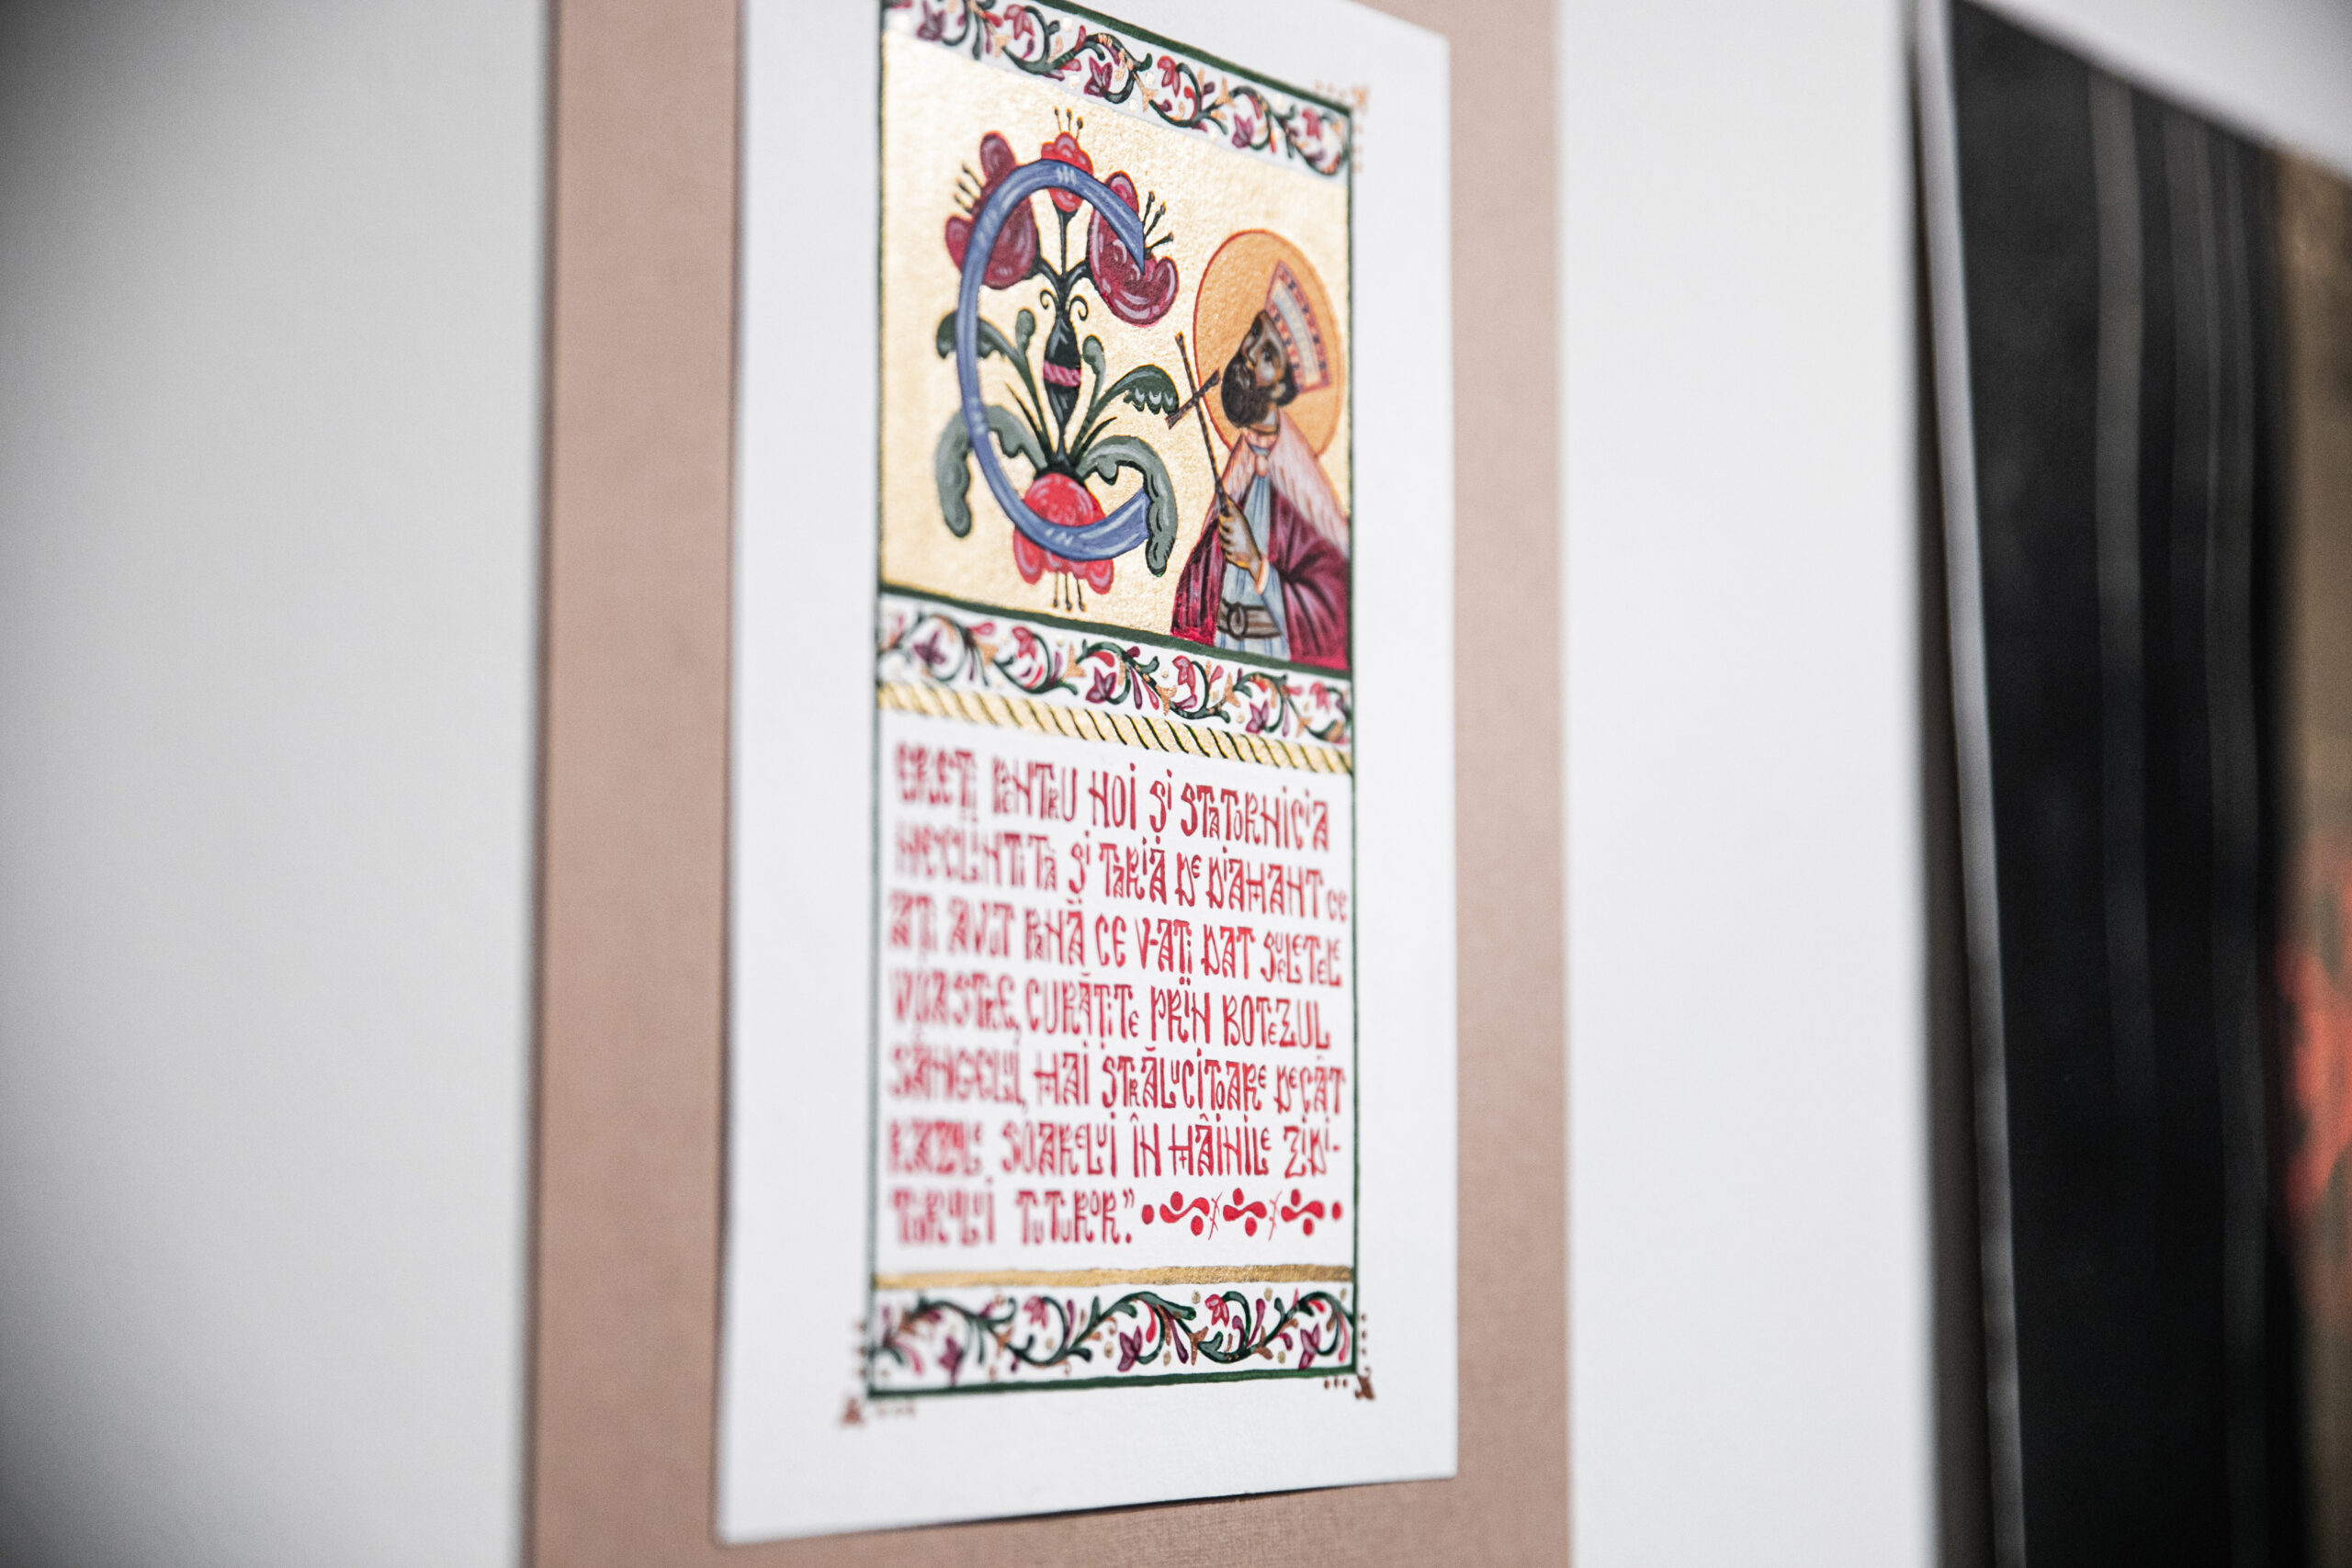 C
EREȚI PENTRU NOI ȘI STATORNICIA
NECLINTITĂ ȘI TĂRIA DE DIAMANT CE
AȚI AVUT PÂNĂ CE V-AȚI DAT SUFLETELE
VOASTRE, CURĂȚITE PRIN BOTEZUL
SÂNGELUI, MAI STRĂLUCITOARE DECÂT
RAZELE SOARELUI ÎN MÂINILE ZIDI-
TORULUI TUTUROR.”